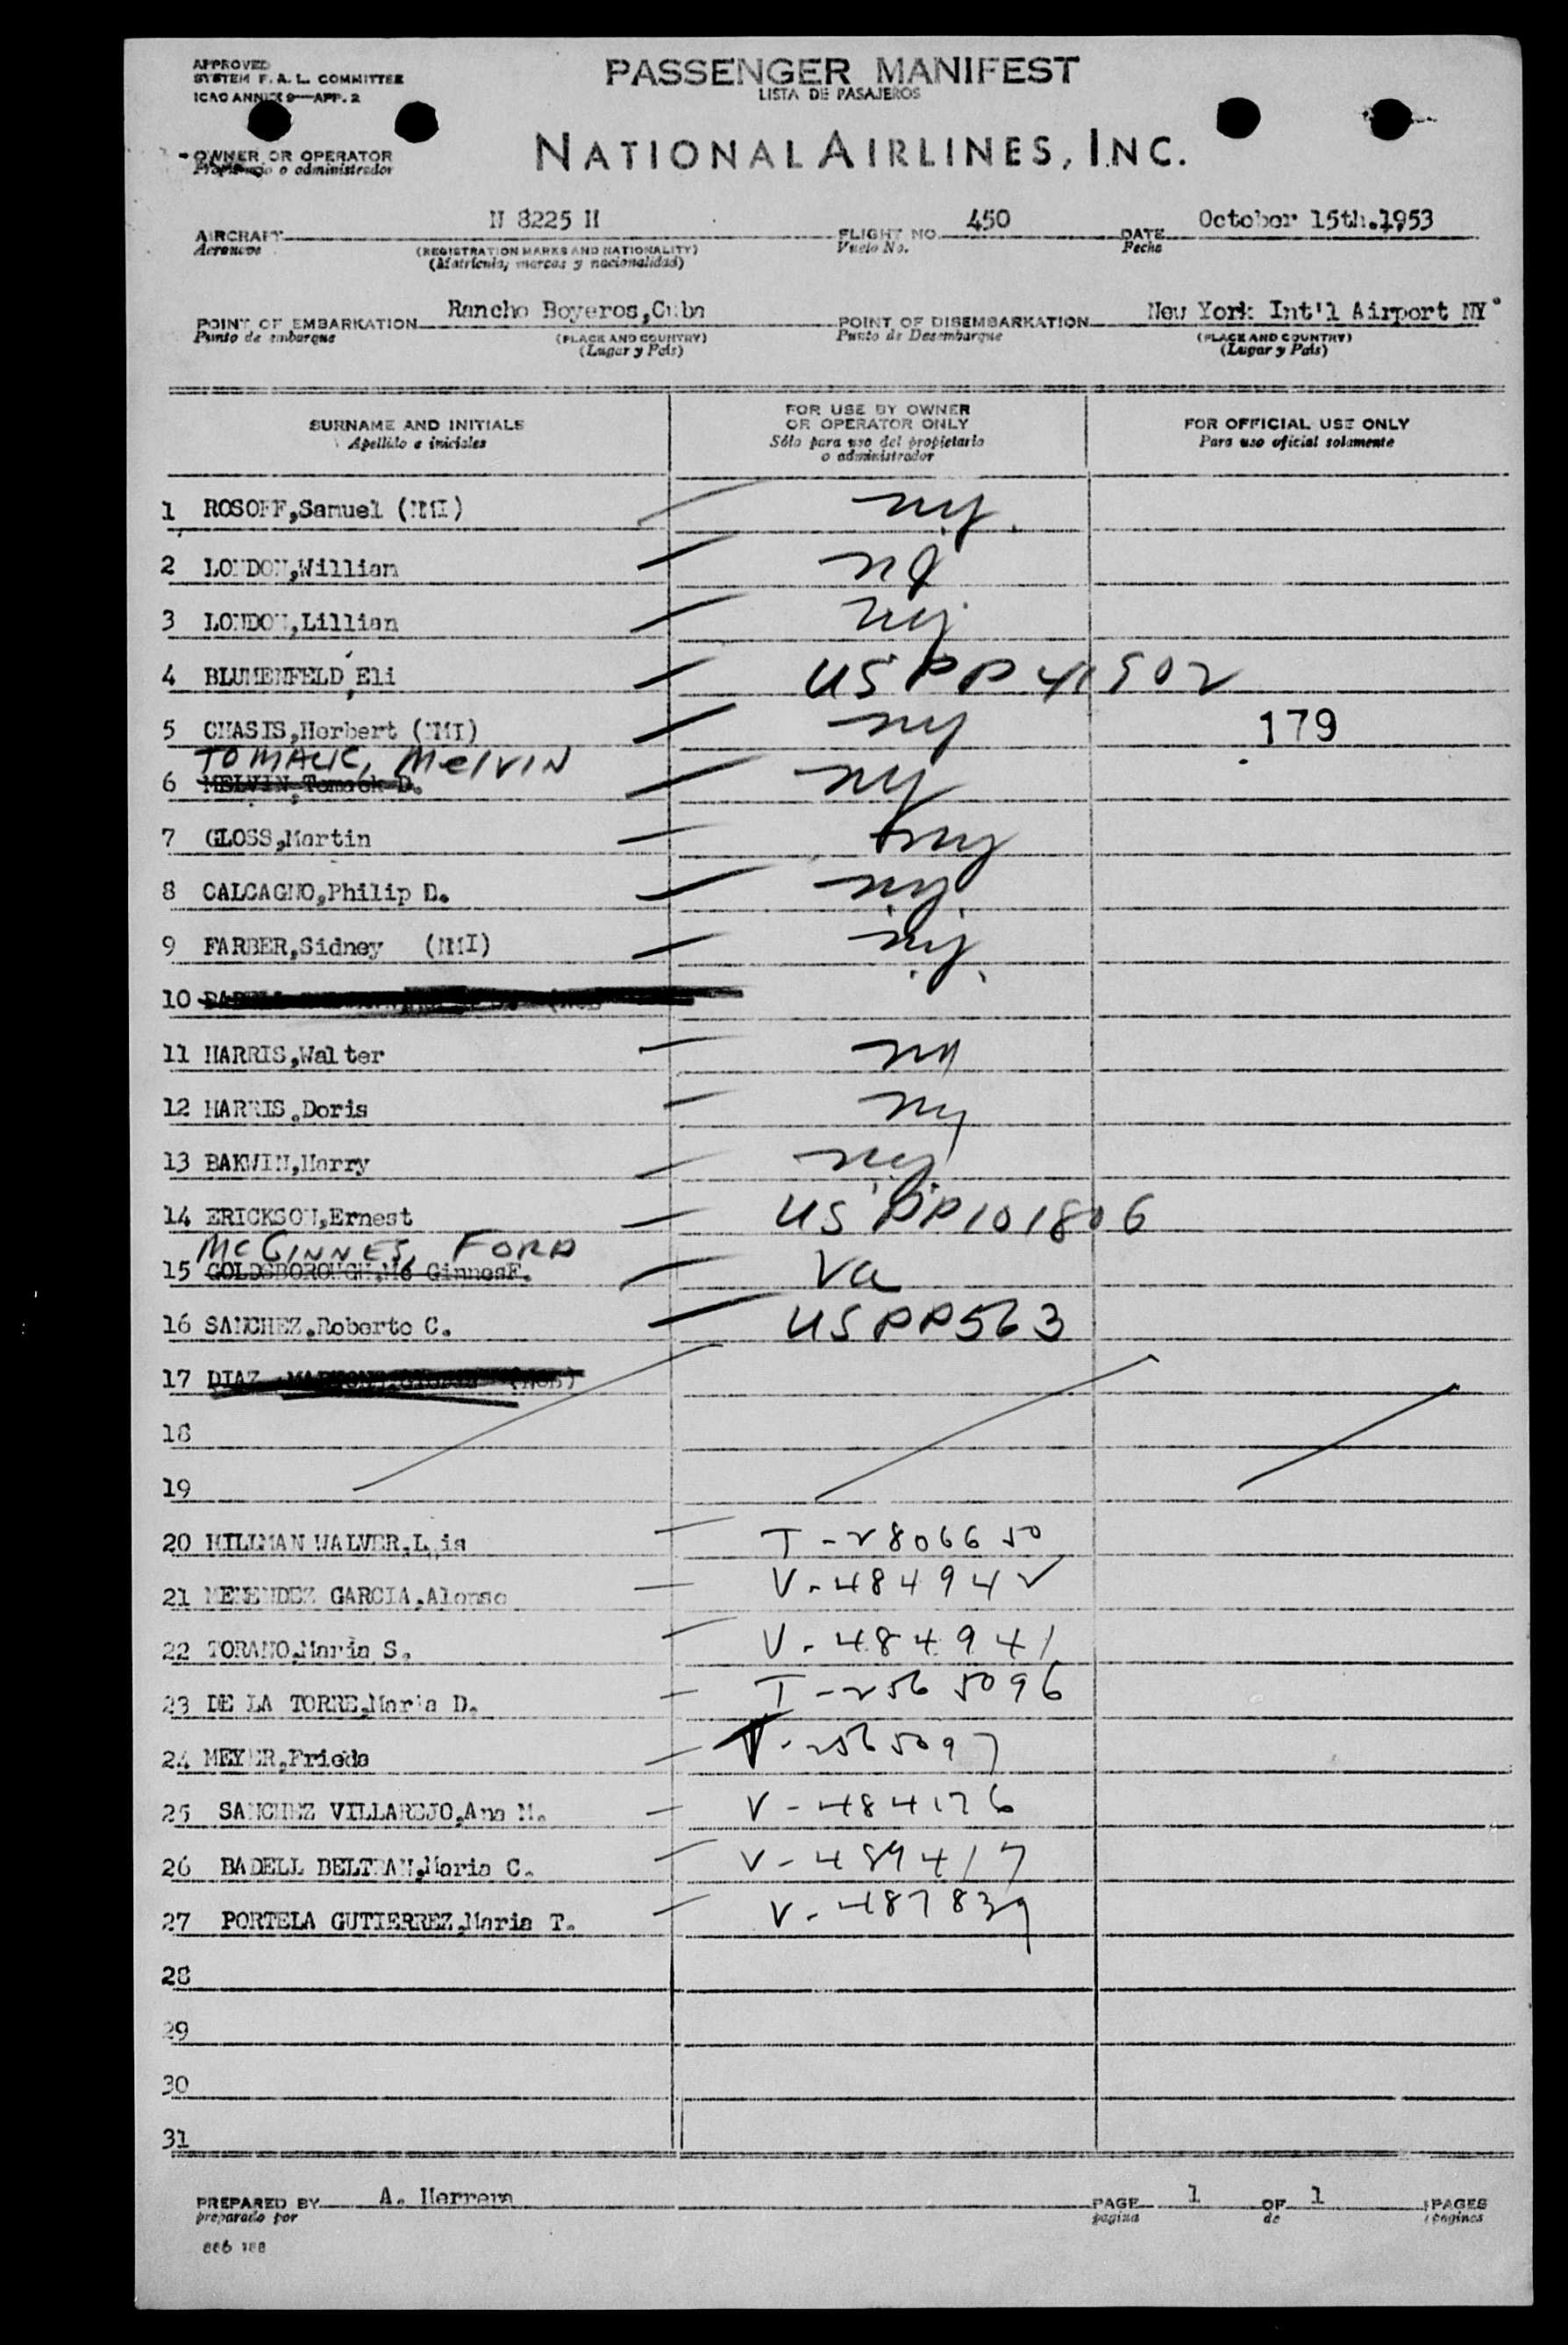 APPROVED
SYSTEM F. A. L. COMMITTEE
ICAO ANNEX 9—APP. 2
PASSENGER MANIFEST
LISTA DE PASAJEROS
NATIONAL AIRLINES, INC.
OWNER OR OPERATOR
Propietario o administrador
AIRCRAFT N 8225 H FLIGHT NO. 450 DATE October 15th.1953
Aeronave (REGISTRATION MARKS AND NATIONALITY) Vuelo No. Fecha
(Matrícula, marcas y nacionalidad)
POINT OF EMBARKATION Rancho Boyeros,Cuba POINT OF DISEMBARKATION New York Int'l Airport NY
Punto de embarque (PLACE AND COUNTRY) Punto de Desembarque (PLACE AND COUNTRY)
(Lugar y País) (Lugar y País)
SURNAME AND INITIALS FOR USE BY OWNER OR OPERATOR ONLY FOR OFFICIAL USE ONLY
Apellido e iniciales Sólo para uso del propietario o administrador Para uso oficial solamente
1 ROSOFF,Samuel (NMI) ny.
2 LONDON,Willian
3 LONDON,Lillian ny
4 BLUMENFELD,Eli US PP 41902
5 CHASIS,Herbert (NMI) ny 179
TOMACK, MelVIN
6 MELVIN,Tomack D. ny
7 GLOSS,Martin ny
8 CALCAGNO,Philip D. ny.
9 FARBER,Sidney (NMI) ny.
10
11 HARRIS,Walter ny
12 HARRIS,Doris ny
13 BAKWIN,Harry ny
14 ERICKSON,Ernest US PP101806
McGINNES, FORD
15 GOLDSBOROUGH,Mc GinnesF. Va
16 SANCHEZ,Roberto C. US PP563
17 DIAZ (NOB)
18
19
20 HILLMAN WALVER,L is T-2806650
21 MENENDEZ GARCIA,Alonso V-484942
22 TORANO,Maria S. V-484941
23 DE LA TORRE,Maria D. T-2565096
24 MEYER,Frieda T-2565097
25 SANCHEZ VILLAREJO,Ana M. V-484176
26 BADELL BELTRAN,Maria C. V-489417
27 PORTELA GUTIERREZ,Maria T. V-487839
28
29
30
31
PREPARED BY A. Herrera PAGE 1 OF 1 PAGES
preparado por pagina de paginas